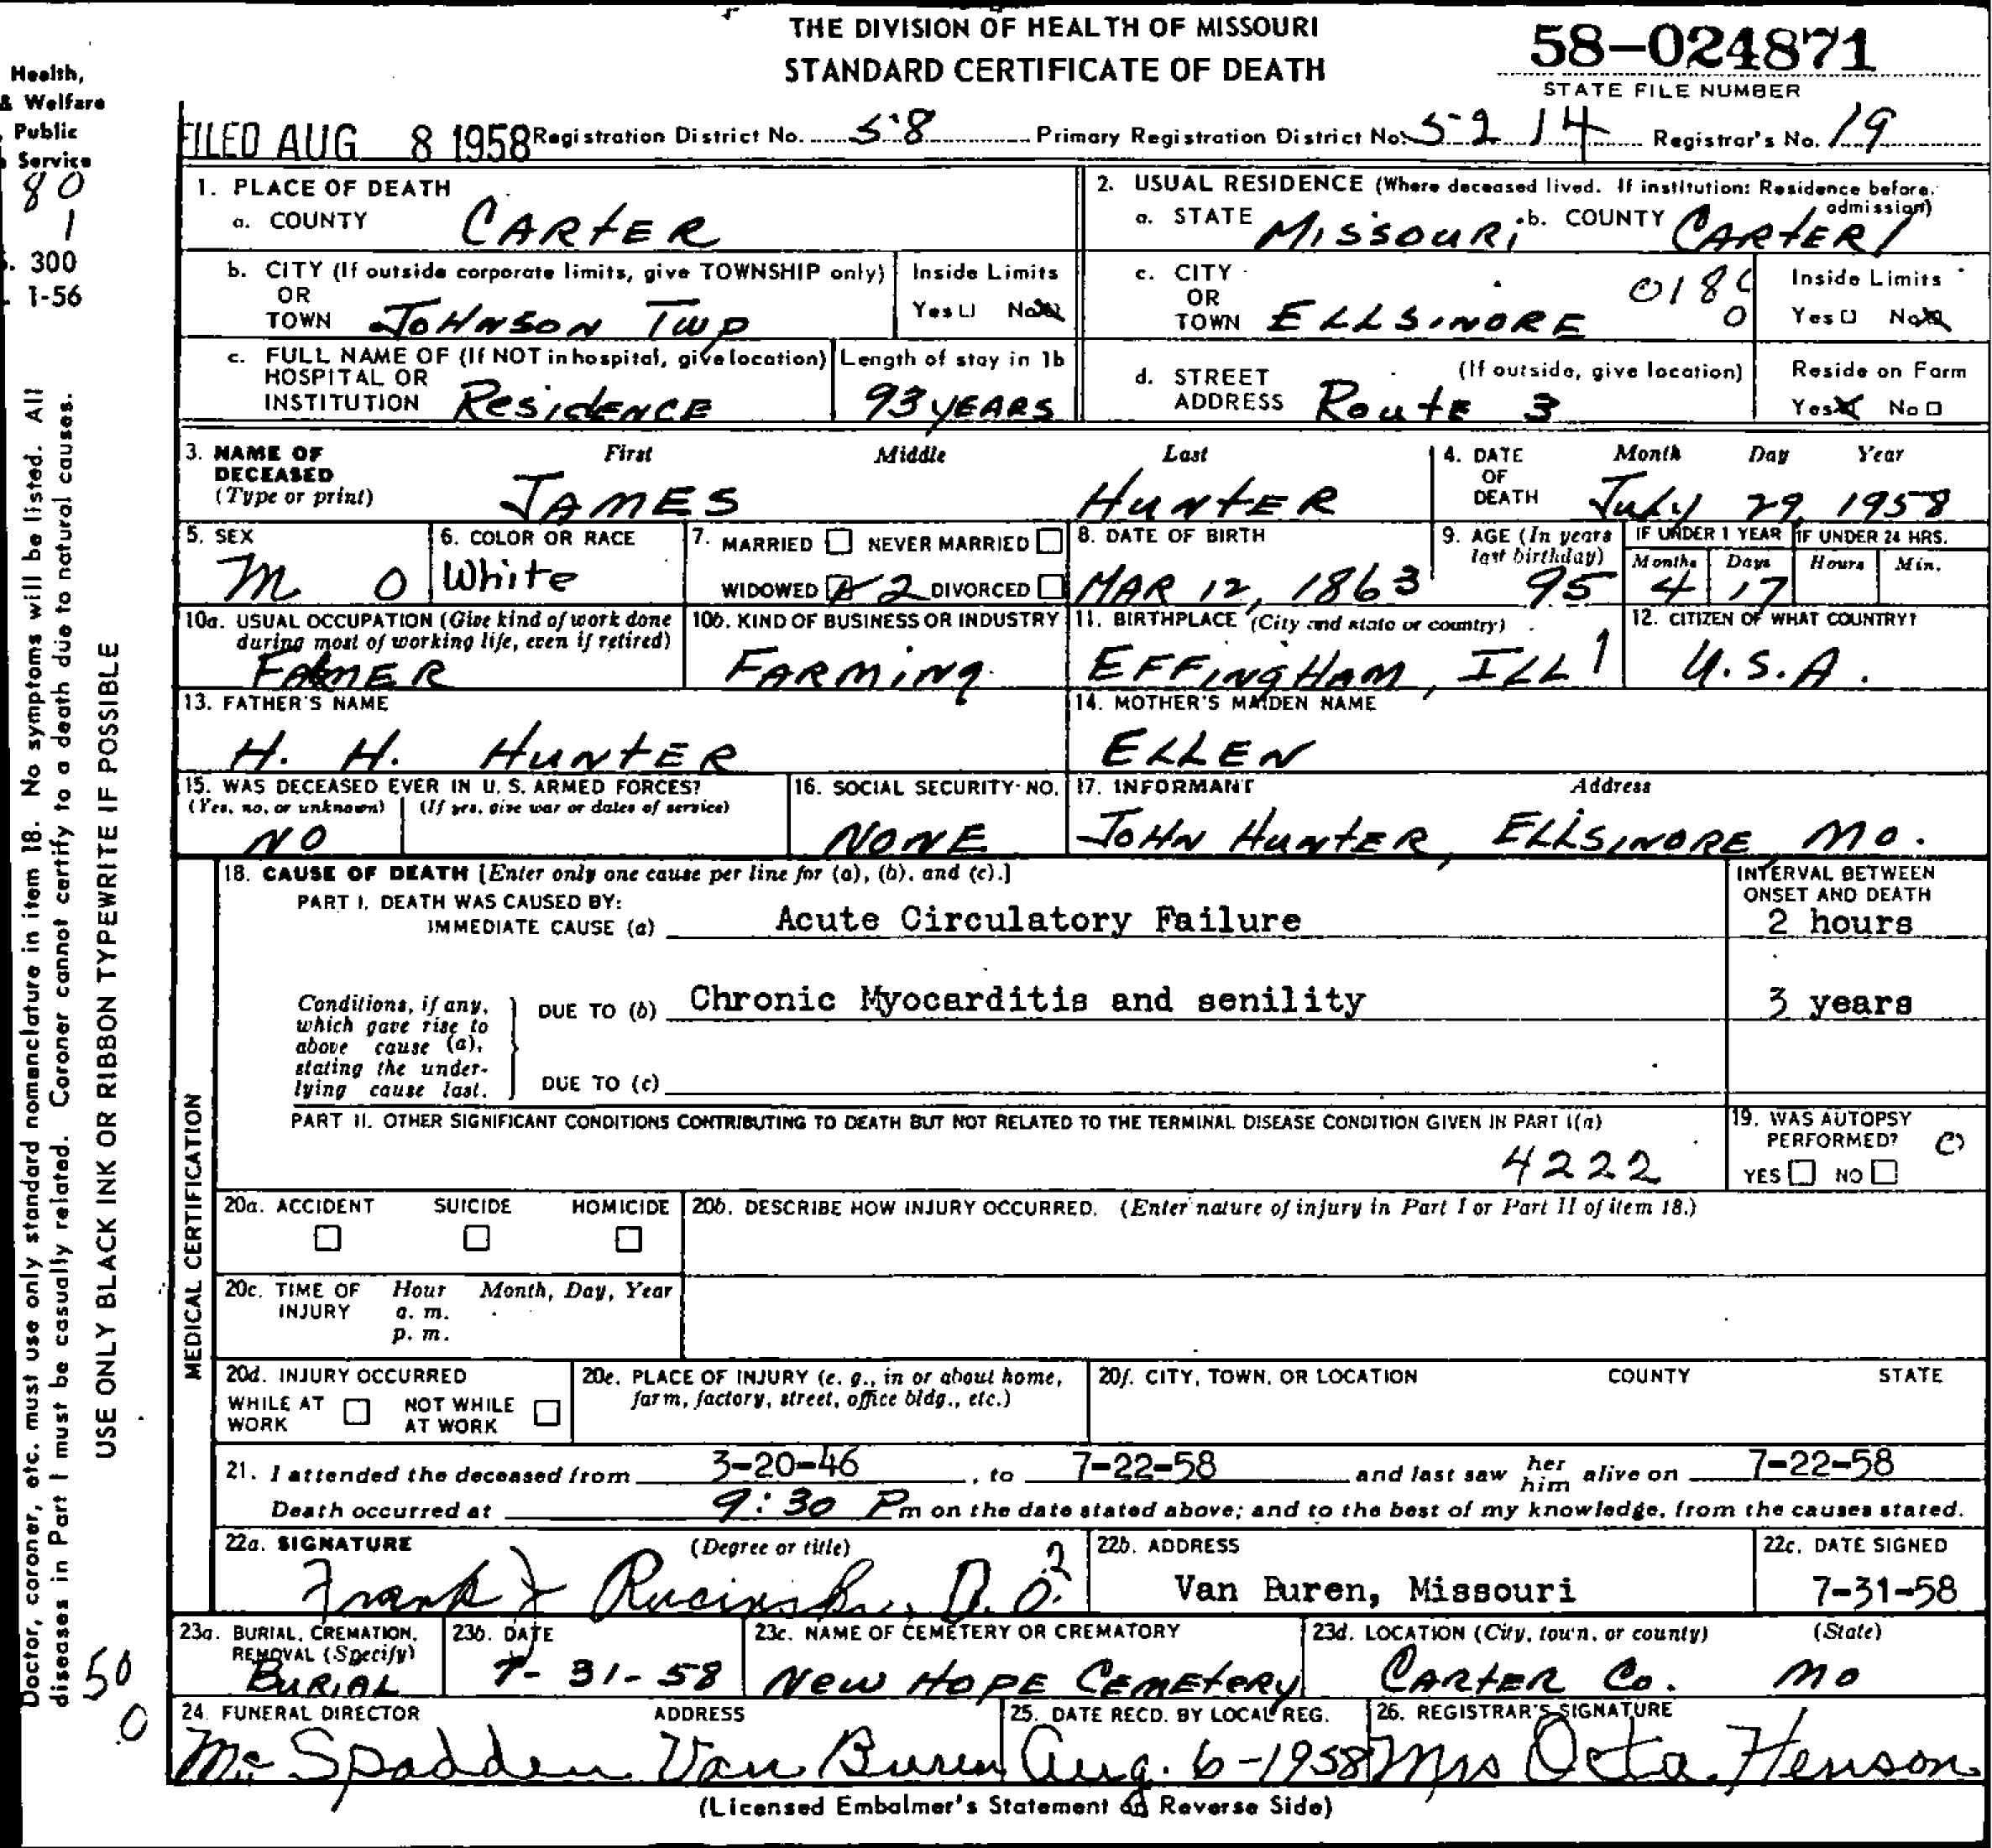 THE DIVISION OF HEALTH OF MISSOURI
STANDARD CERTIFICATE OF DEATH
58-024871
STATE FILE NUMBER
Health,
& Welfare
Public
Service
80
1
300
1-56
FILED AUG 8 1958 Registration District No. 58 Primary Registration District No. 5214 Registrar's No. 19
1. PLACE OF DEATH
a. COUNTY CARTER
2. USUAL RESIDENCE (Where deceased lived. If institution: Residence before admission)
a. STATE MISSOURI b. COUNTY CARTER
b. CITY (If outside corporate limits, give TOWNSHIP only)
OR
TOWN JOHNSON TWP
Inside Limits
Yes No
c. CITY
OR
TOWN ELLSINORE
018
0
Inside Limits
Yes No
c. FULL NAME OF (If NOT in hospital, give location)
HOSPITAL OR
INSTITUTION RESIDENCE
Length of stay in 1b
93 YEARS
d. STREET
ADDRESS ROUTE 3
(If outside, give location)
Reside on Farm
Yes No
3. NAME OF
DECEASED
(Type or print)
First Middle Last
JAMES HUNTER
4. DATE
OF
DEATH
Month Day Year
July 29, 1958
5. SEX
M O
6. COLOR OR RACE
White
7. MARRIED NEVER MARRIED
WIDOWED 2 DIVORCED
8. DATE OF BIRTH
MAR 12, 1863
9. AGE (In years
last birthday)
95
IF UNDER 1 YEAR
Months Days
4 17
IF UNDER 24 HRS.
Hours Min.
10a. USUAL OCCUPATION (Give kind of work done
during most of working life, even if retired)
FARMER
10b. KIND OF BUSINESS OR INDUSTRY
FARMING
11. BIRTHPLACE (City and state or country)
EFFINGHAM, ILL 1
12. CITIZEN OF WHAT COUNTRY?
U.S.A.
13. FATHER'S NAME
H. H. HUNTER
14. MOTHER'S MAIDEN NAME
ELLEN
15. WAS DECEASED EVER IN U. S. ARMED FORCES?
(Yes, no, or unknown) (If yes, give war or dates of service)
NO
16. SOCIAL SECURITY NO.
NONE
17. INFORMANT Address
JOHN HUNTER, ELLSINORE MO.
MEDICAL CERTIFICATION
18. CAUSE OF DEATH [Enter only one cause per line for (a), (b), and (c).]
PART I. DEATH WAS CAUSED BY:
IMMEDIATE CAUSE (a) Acute Circulatory Failure
INTERVAL BETWEEN
ONSET AND DEATH
2 hours
Conditions, if any,
which gave rise to
above cause (a),
stating the under-
lying cause last.
DUE TO (b) Chronic Myocarditis and senility
3 years
DUE TO (c)
PART II. OTHER SIGNIFICANT CONDITIONS CONTRIBUTING TO DEATH BUT NOT RELATED TO THE TERMINAL DISEASE CONDITION GIVEN IN PART I(a)
4222
19. WAS AUTOPSY
PERFORMED? O
YES NO
20a. ACCIDENT SUICIDE HOMICIDE
20b. DESCRIBE HOW INJURY OCCURRED. (Enter nature of injury in Part I or Part II of item 18.)
20c. TIME OF
INJURY
Hour Month, Day, Year
a. m.
p. m.
20d. INJURY OCCURRED
WHILE AT
WORK
NOT WHILE
AT WORK
20e. PLACE OF INJURY (e. g., in or about home,
farm, factory, street, office bldg., etc.)
20f. CITY, TOWN, OR LOCATION COUNTY STATE
21. I attended the deceased from 3-20-46, to 7-22-58 and last saw her him alive on 7-22-58
Death occurred at 9:30 Pm on the date stated above; and to the best of my knowledge, from the causes stated.
22a. SIGNATURE (Degree or title)
Frank J Rucinski, D.O. 2
22b. ADDRESS
Van Buren, Missouri
22c. DATE SIGNED
7-31-58
23a. BURIAL, CREMATION,
REMOVAL (Specify)
BURIAL
23b. DATE
7-31-58
23c. NAME OF CEMETERY OR CREMATORY
NEW HOPE CEMETERY
23d. LOCATION (City, town, or county) (State)
CARTER CO. MO
24. FUNERAL DIRECTOR ADDRESS
McSpadden Van Buren
25. DATE RECD. BY LOCAL REG.
Aug. 6-1958
26. REGISTRAR'S SIGNATURE
Mrs Octa Henson
(Licensed Embalmer's Statement on Reverse Side)
Doctor, coroner, etc. must use only standard nomenclature in item 18. No symptoms will be listed. All
diseases in Part I must be casually related. Coroner cannot certify to a death due to natural causes.
USE ONLY BLACK INK OR RIBBON TYPEWRITE IF POSSIBLE
50
0